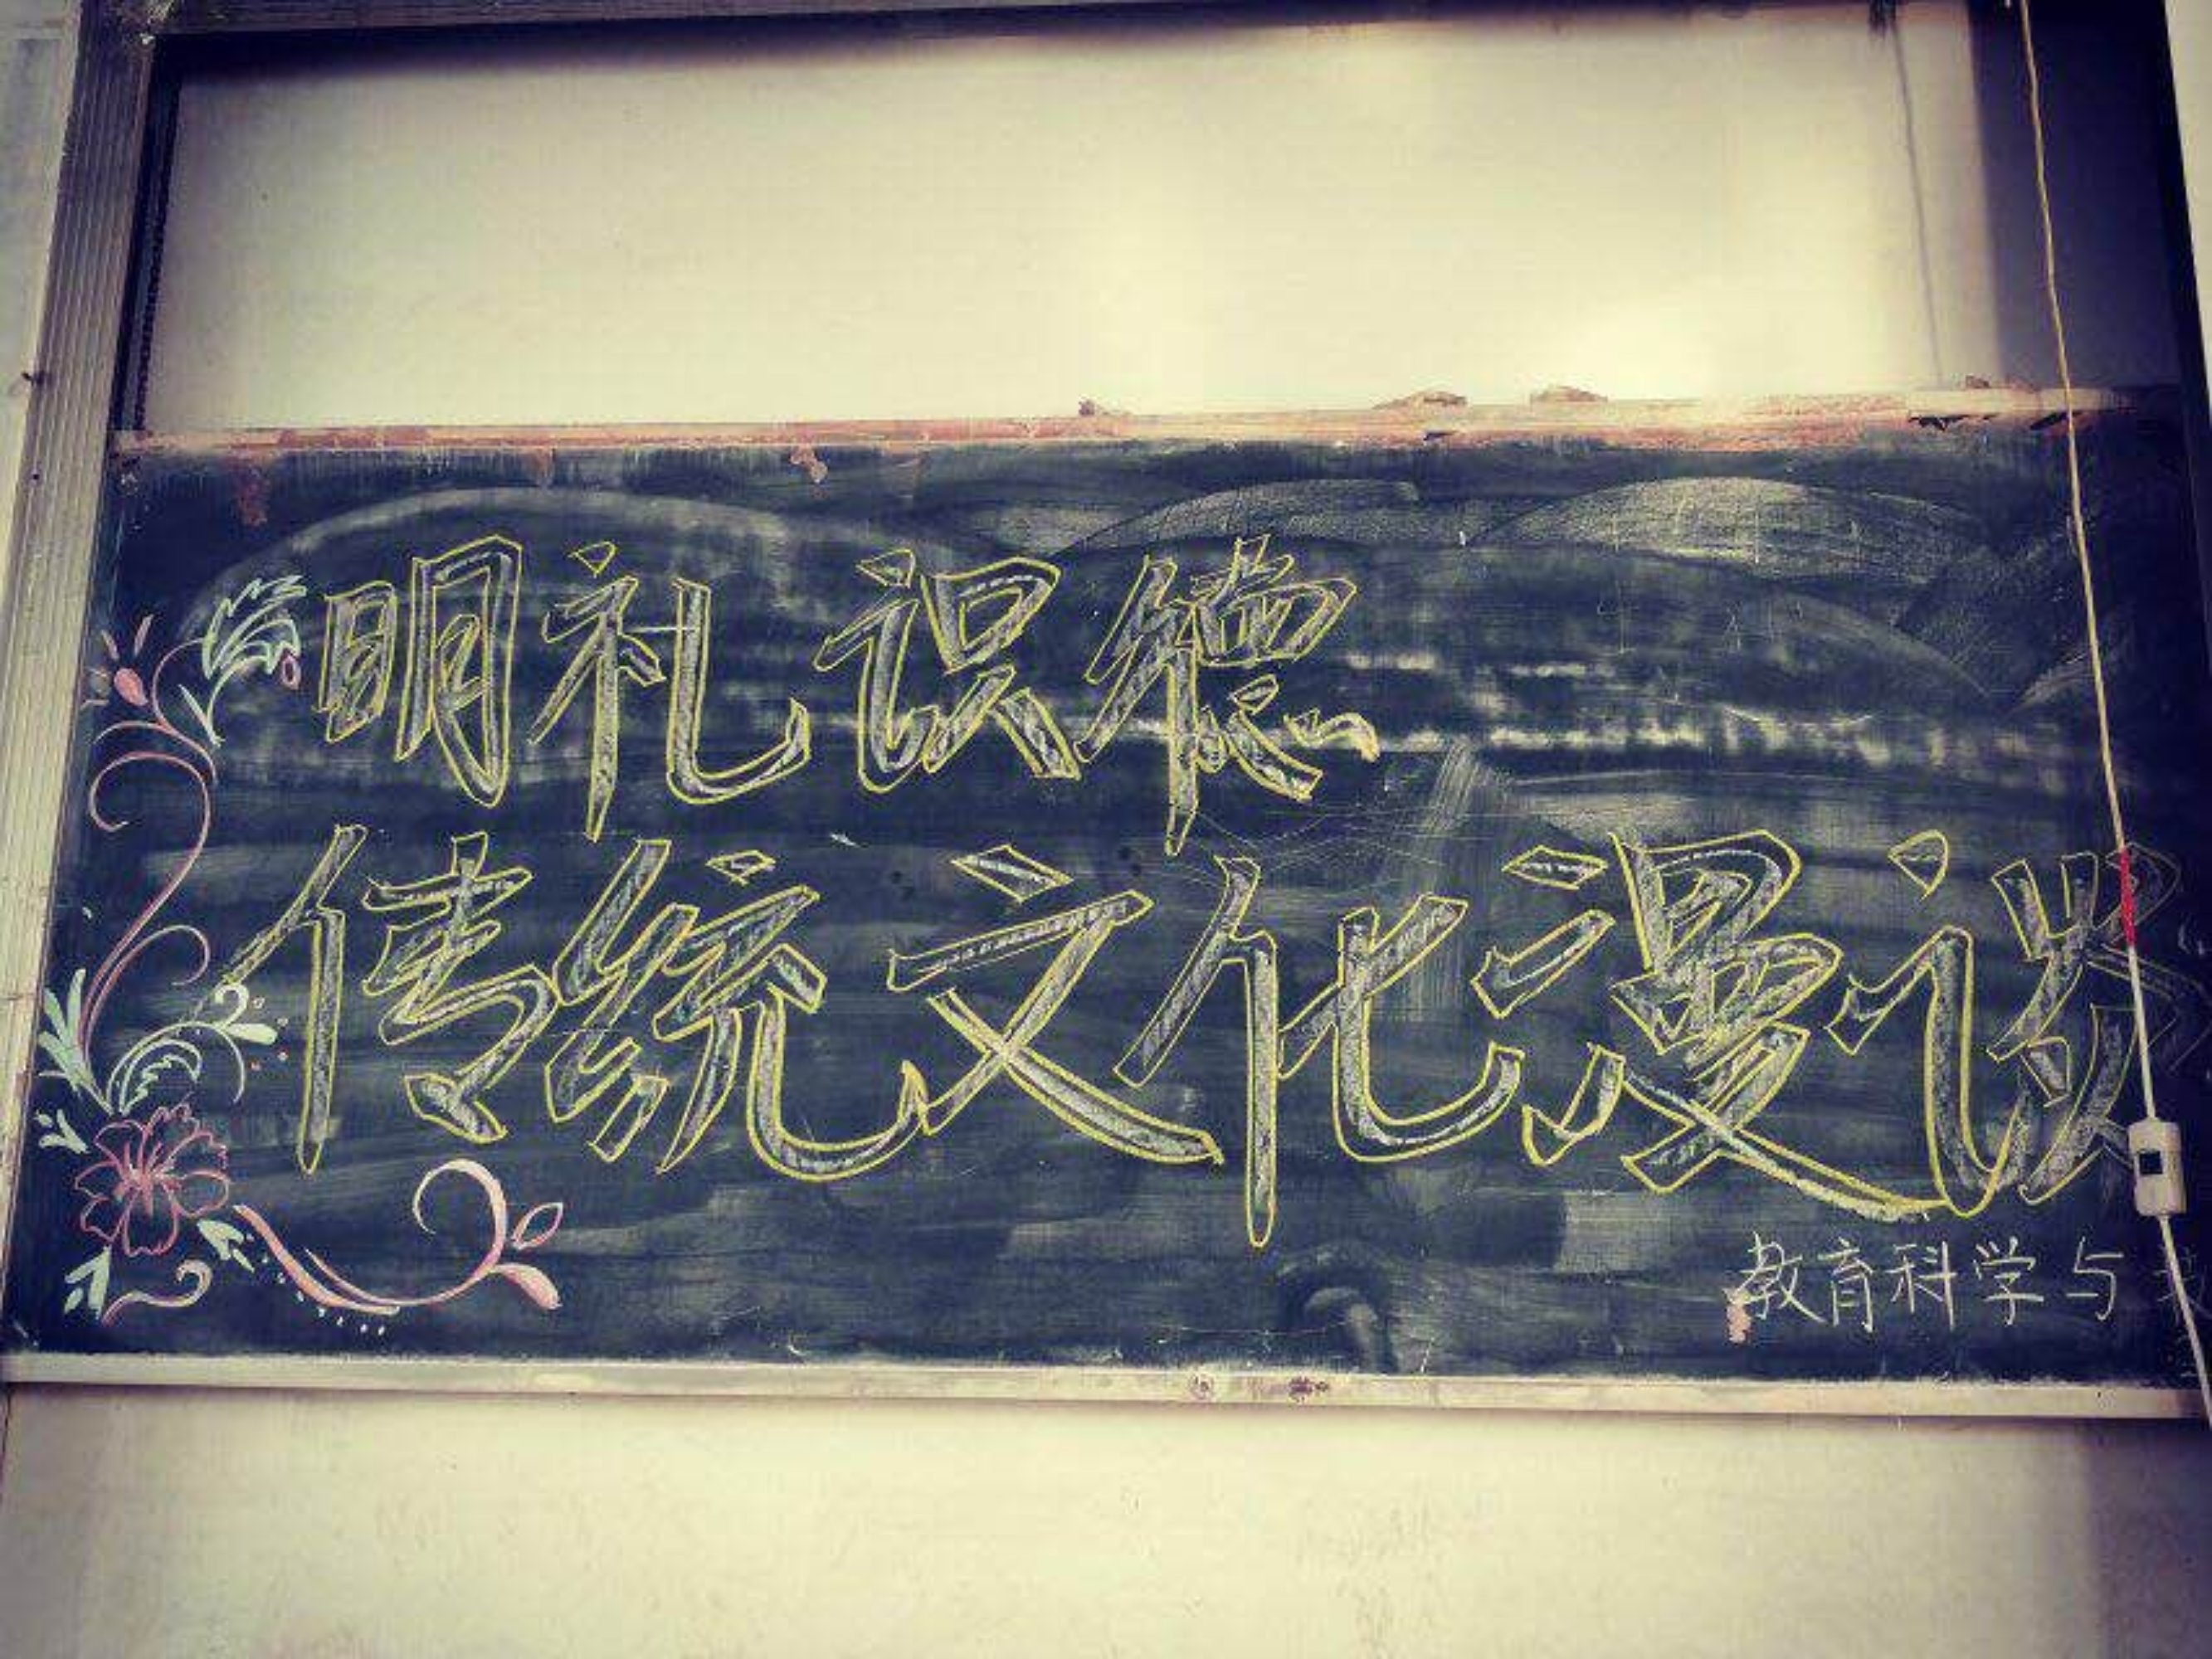 明礼识德
传统文化漫谈
教育科学与